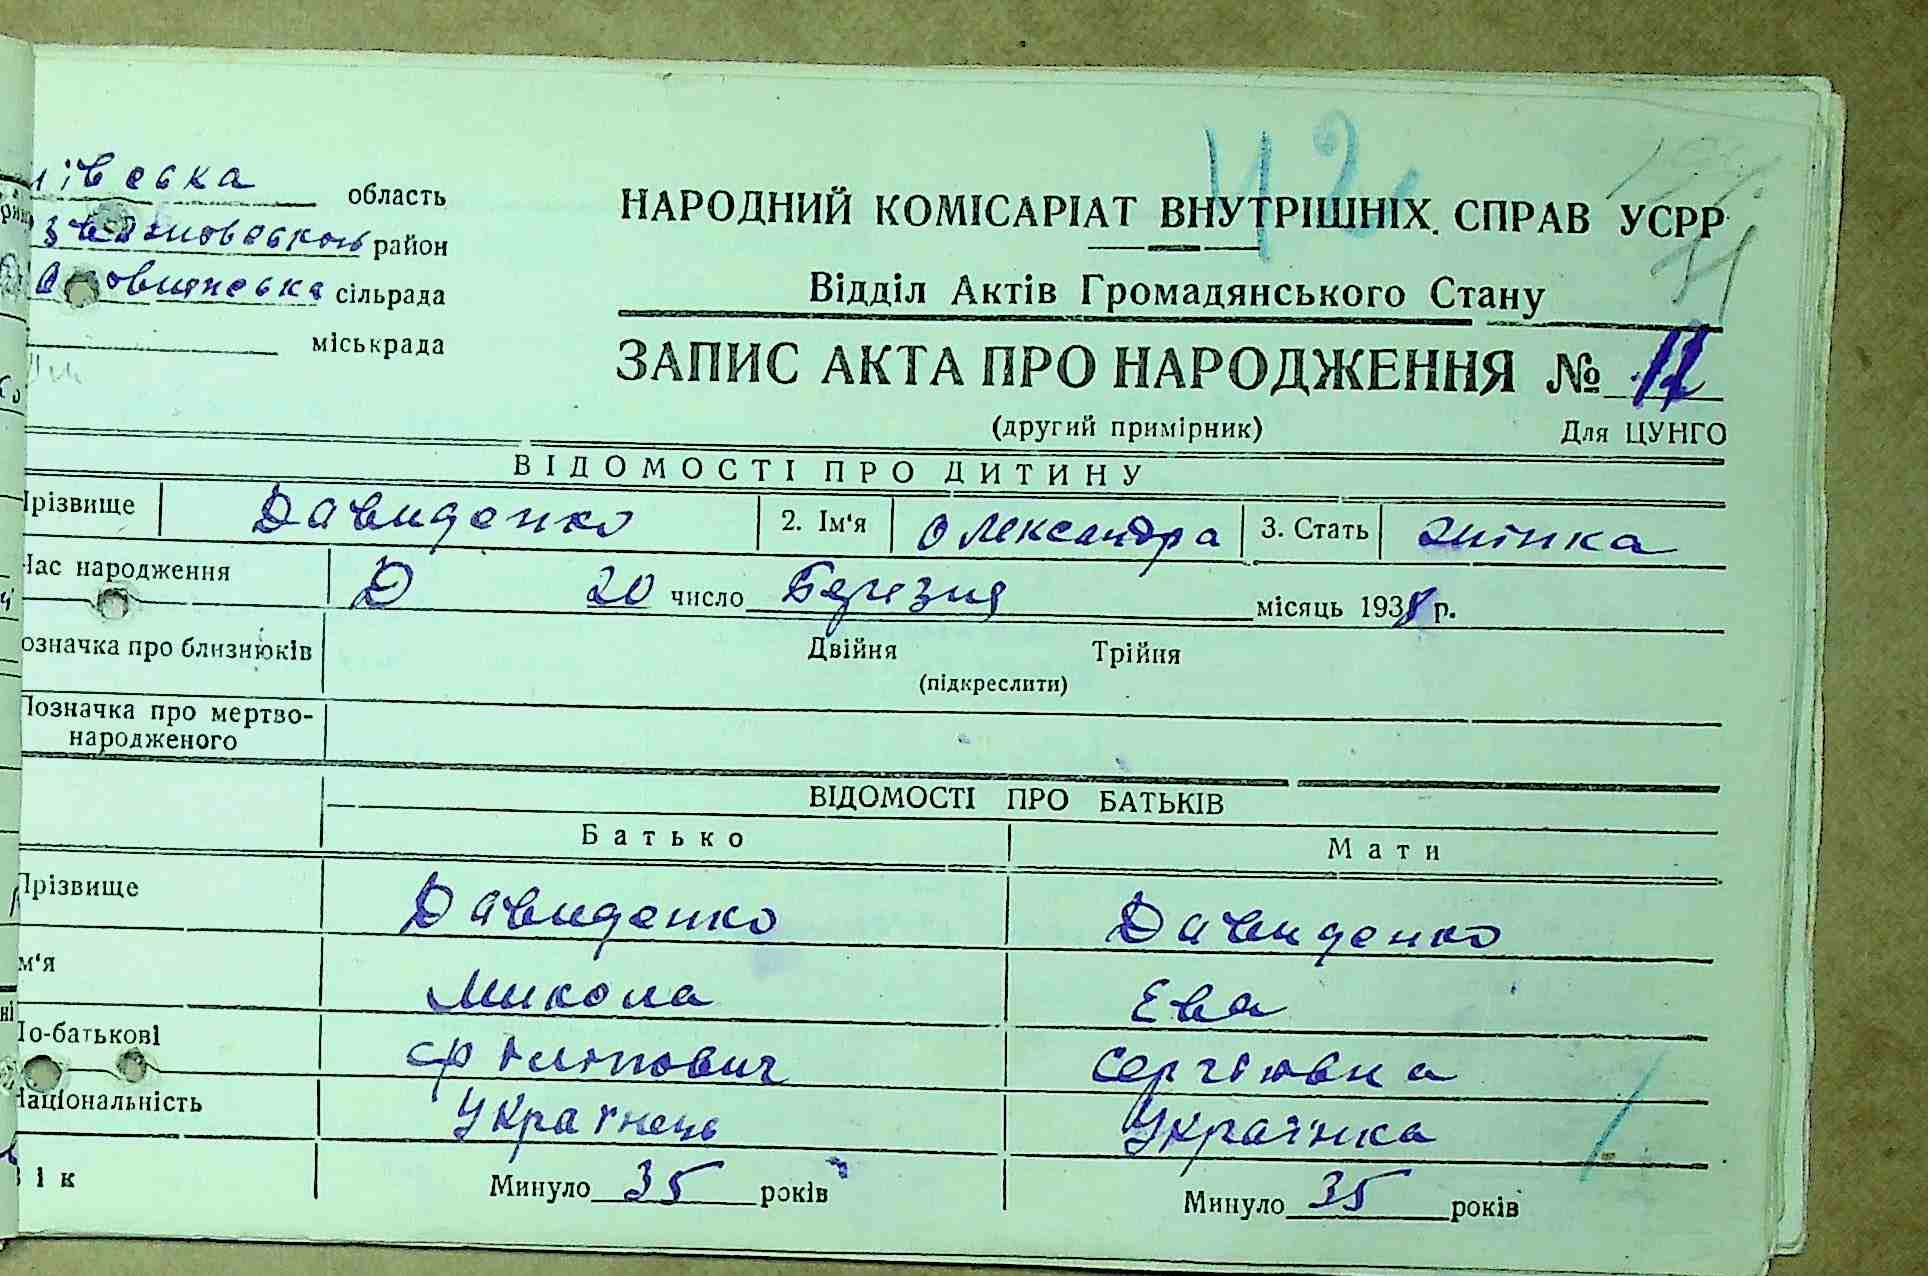 ївська область
район
сільрада
міськрада
42
НАРОДНИЙ КОМІСАРІАТ ВНУТРІШНІХ СПРАВ УСРР
Відділ Актів Громадянського Стану
ЗАПИС АКТА ПРО НАРОДЖЕННЯ №
(другий примірник) Для ЦУНГО
ВІДОМОСТІ ПРО ДИТИНУ
Прізвище Давиденко 2. Ім‘я Олександра 3. Стать жінка
Час народження 20 число Березня місяць 1938 р.
означка про близнюків Двійня Трійня
(підкреслити)
Позначка про мертво-
народженого
ВІДОМОСТІ ПРО БАТЬКІВ
Батько Мати
Прізвище Давиденко Давиденко
м‘я Микола Ева
По-батькові Філіпович Сергіювна
Національність Українець Українка
Вік Минуло 35 років Минуло 35 років